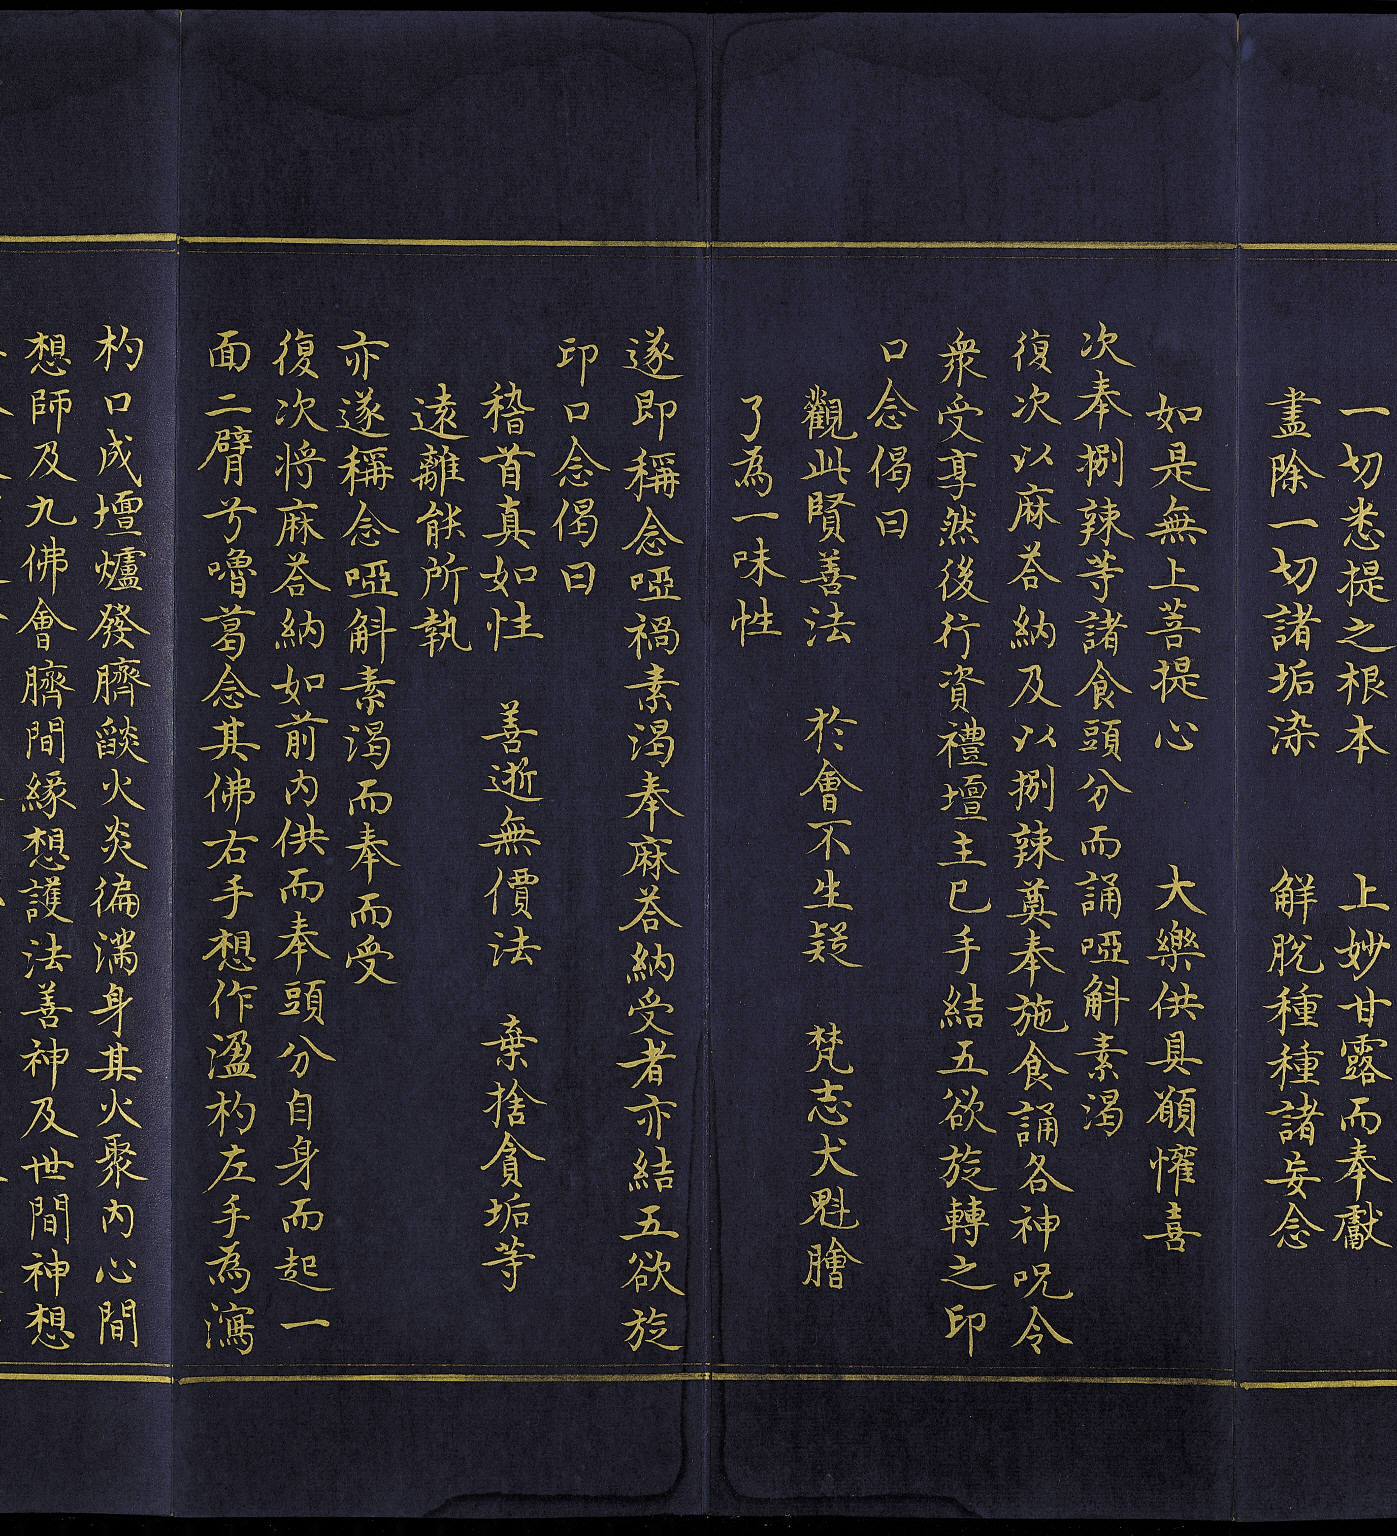 一切悉提之根本　上妙甘露而奉獻
盡除一切諸垢染　解脫種種諸妄念
如是無上菩提心　大樂供具願懽喜
次奉捌辣等諸食頭分而誦啞斛素渴
復次以麻荅納及以捌辣奠奉施食誦各神呪令
衆受享然後行資禮壇主巳手結五欲旋轉之印
口念偈曰
觀此賢善法　於會不生疑　梵志犬魁膾
了為一味性
遂即稱念啞禍素渴奉麻荅納受者亦結五欲旋
印口念偈曰
稽首真如性　善逝無價法　棄捨貪垢等
遠離能所執
亦遂稱念啞斛素渴而奉而受
復次将麻荅納如前内供而奉頭分自身而起一
面二臂兮嚕葛念其佛右手想作溋杓左手為瀉
杓口成壇爐發臍燄火炎徧満身其火聚内心間
想師及九佛會臍間緣想護法善神及世間神想